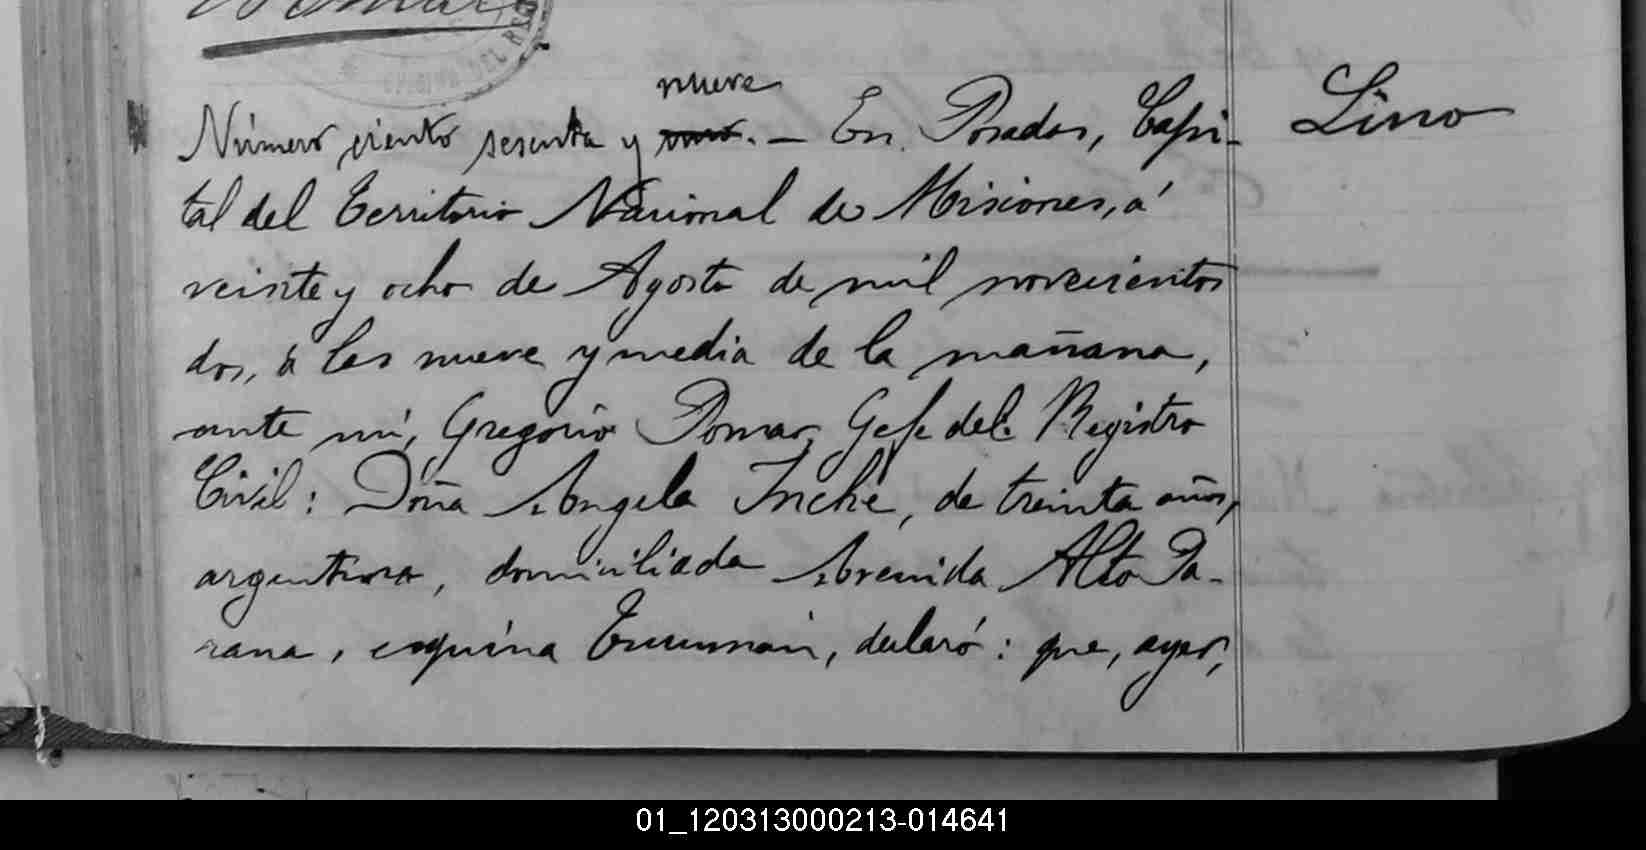 OFICINA DEL RE
nueve
Número ciento sesenta y ocho. — En Posadas, Capi-
Lino
tal del Territorio Nacional de Misiones, á
veinte y ocho de Agosto de mil novecientos
dos, á las nueve y media de la mañana,
ante mí, Gregorio Pomar, Gefe del Registro
Civil: Doña Angela Inche, de treinta años,
argentina, domiciliada Avenida Alto Pa-
rana, esquina Tucumán, declaró: que, ayer,
01_120313000213-014641